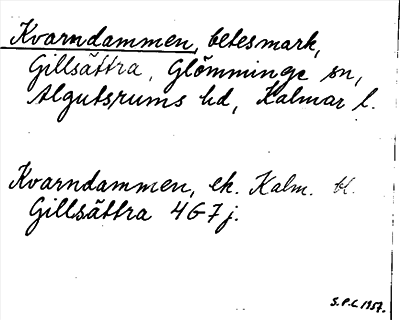 Kvarndammen, betesmark,
Gillsättra, Glömminge sn,
Algutsrums hd, Kalmar l.
Kvarndammen, ek. Kalm. bl.
Gillsättra 4G7j.
S.P.L. 1957.